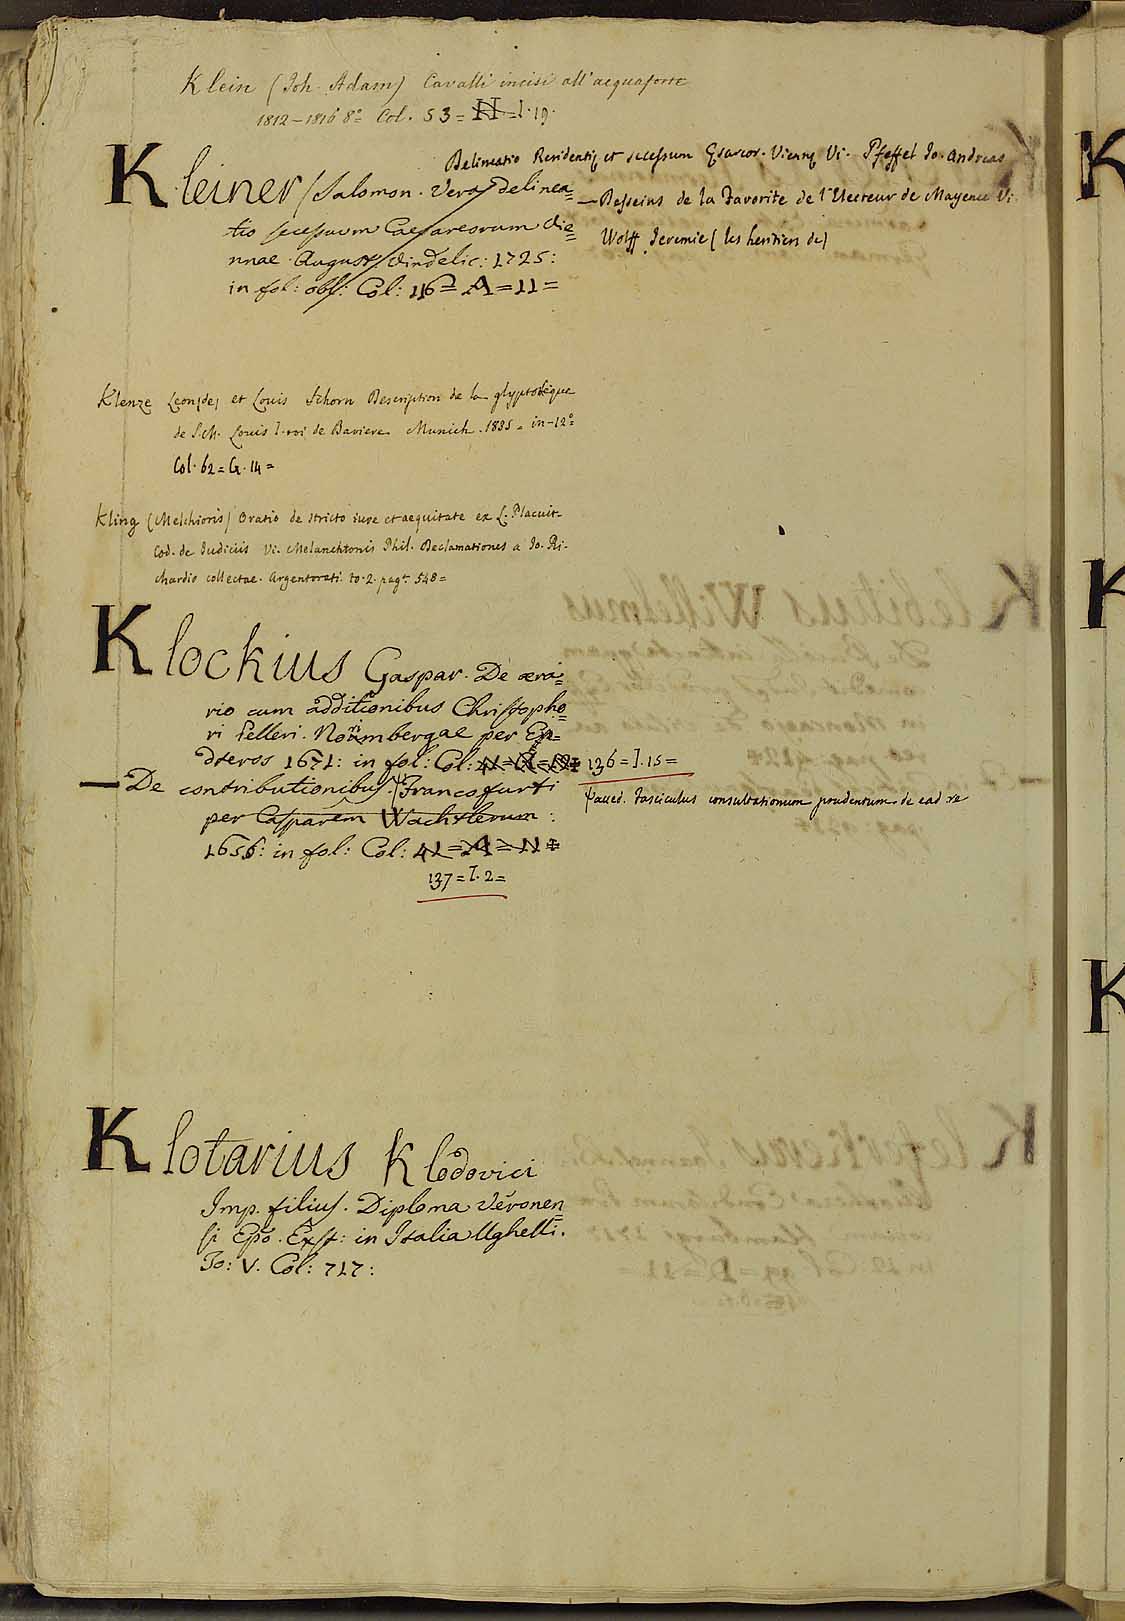 Klein (Joh. Adam) Cavalli incisi all'acquaforte
1812-1816 8° Col. 53 = H = I. 19.
Delineatio Residentię et secessum Cęsareor. Viennę Vi. Pfeffel Jo. Andreas
Kleiner Salomon. Vera delinea=
tio secessuum Caesareorum Vie=
nnae. Augustę Vindelic: 1725:
in fol: obl: Col: 116 = A = 11 =
— Desseins de la Favorite de l'Electeur de Mayence Vi.
Wolff Jeremie (les heritiers de)
Klenze Leon (de) et Louis Schorn Description de la glyptotèque
de S. M. Louis I. roi de Baviere Munich. 1835 = in-12°
Col. 62 = G. 14 =
Kling (Melchioris) Oratio de stricto iure et aequitate ex L. Placuit
Cod. de Judiciis Vi. Melanchtonis Phil. Declamationes a Jo. Ri-
chardio collectae. Argentorati to. 2. pag. 548 =
Klockius Gaspar. De æra=
rio cum additionibus Christopho=
ri Pelleri. Norimbergae per En=
dteros 1671: in fol: Col: 136 = I. 15 =
— De contributionibus. Francofurti
per Casparem Wachtlerum:
1656: in fol: Col: 41 = A = 11 =
137 = I. 2 =
Fasciculus consultationum prudentum de ead re
Klotarius Klodovici
Imp. filius. Diploma Veronen=
si Epo. Exst: in Italia Ughelli.
To: V. Col: 717: